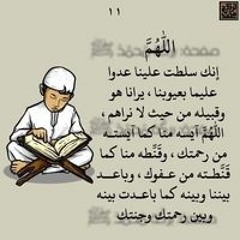 ١١
اللَّهُمَّ
إنك سلطت علينا عدوا
عليما بعيوبنا ، يرانا هو
وقبيله من حيث لا نراهم ،
اللَّهُمَّ آيسه منا كما آيسته
من رحمتك ، وقنِّطه منا كما
قنَّطته من عفوك ، وباعد
بيننا وبينه كما باعدت بينه
وبين رحمتك وجنتك